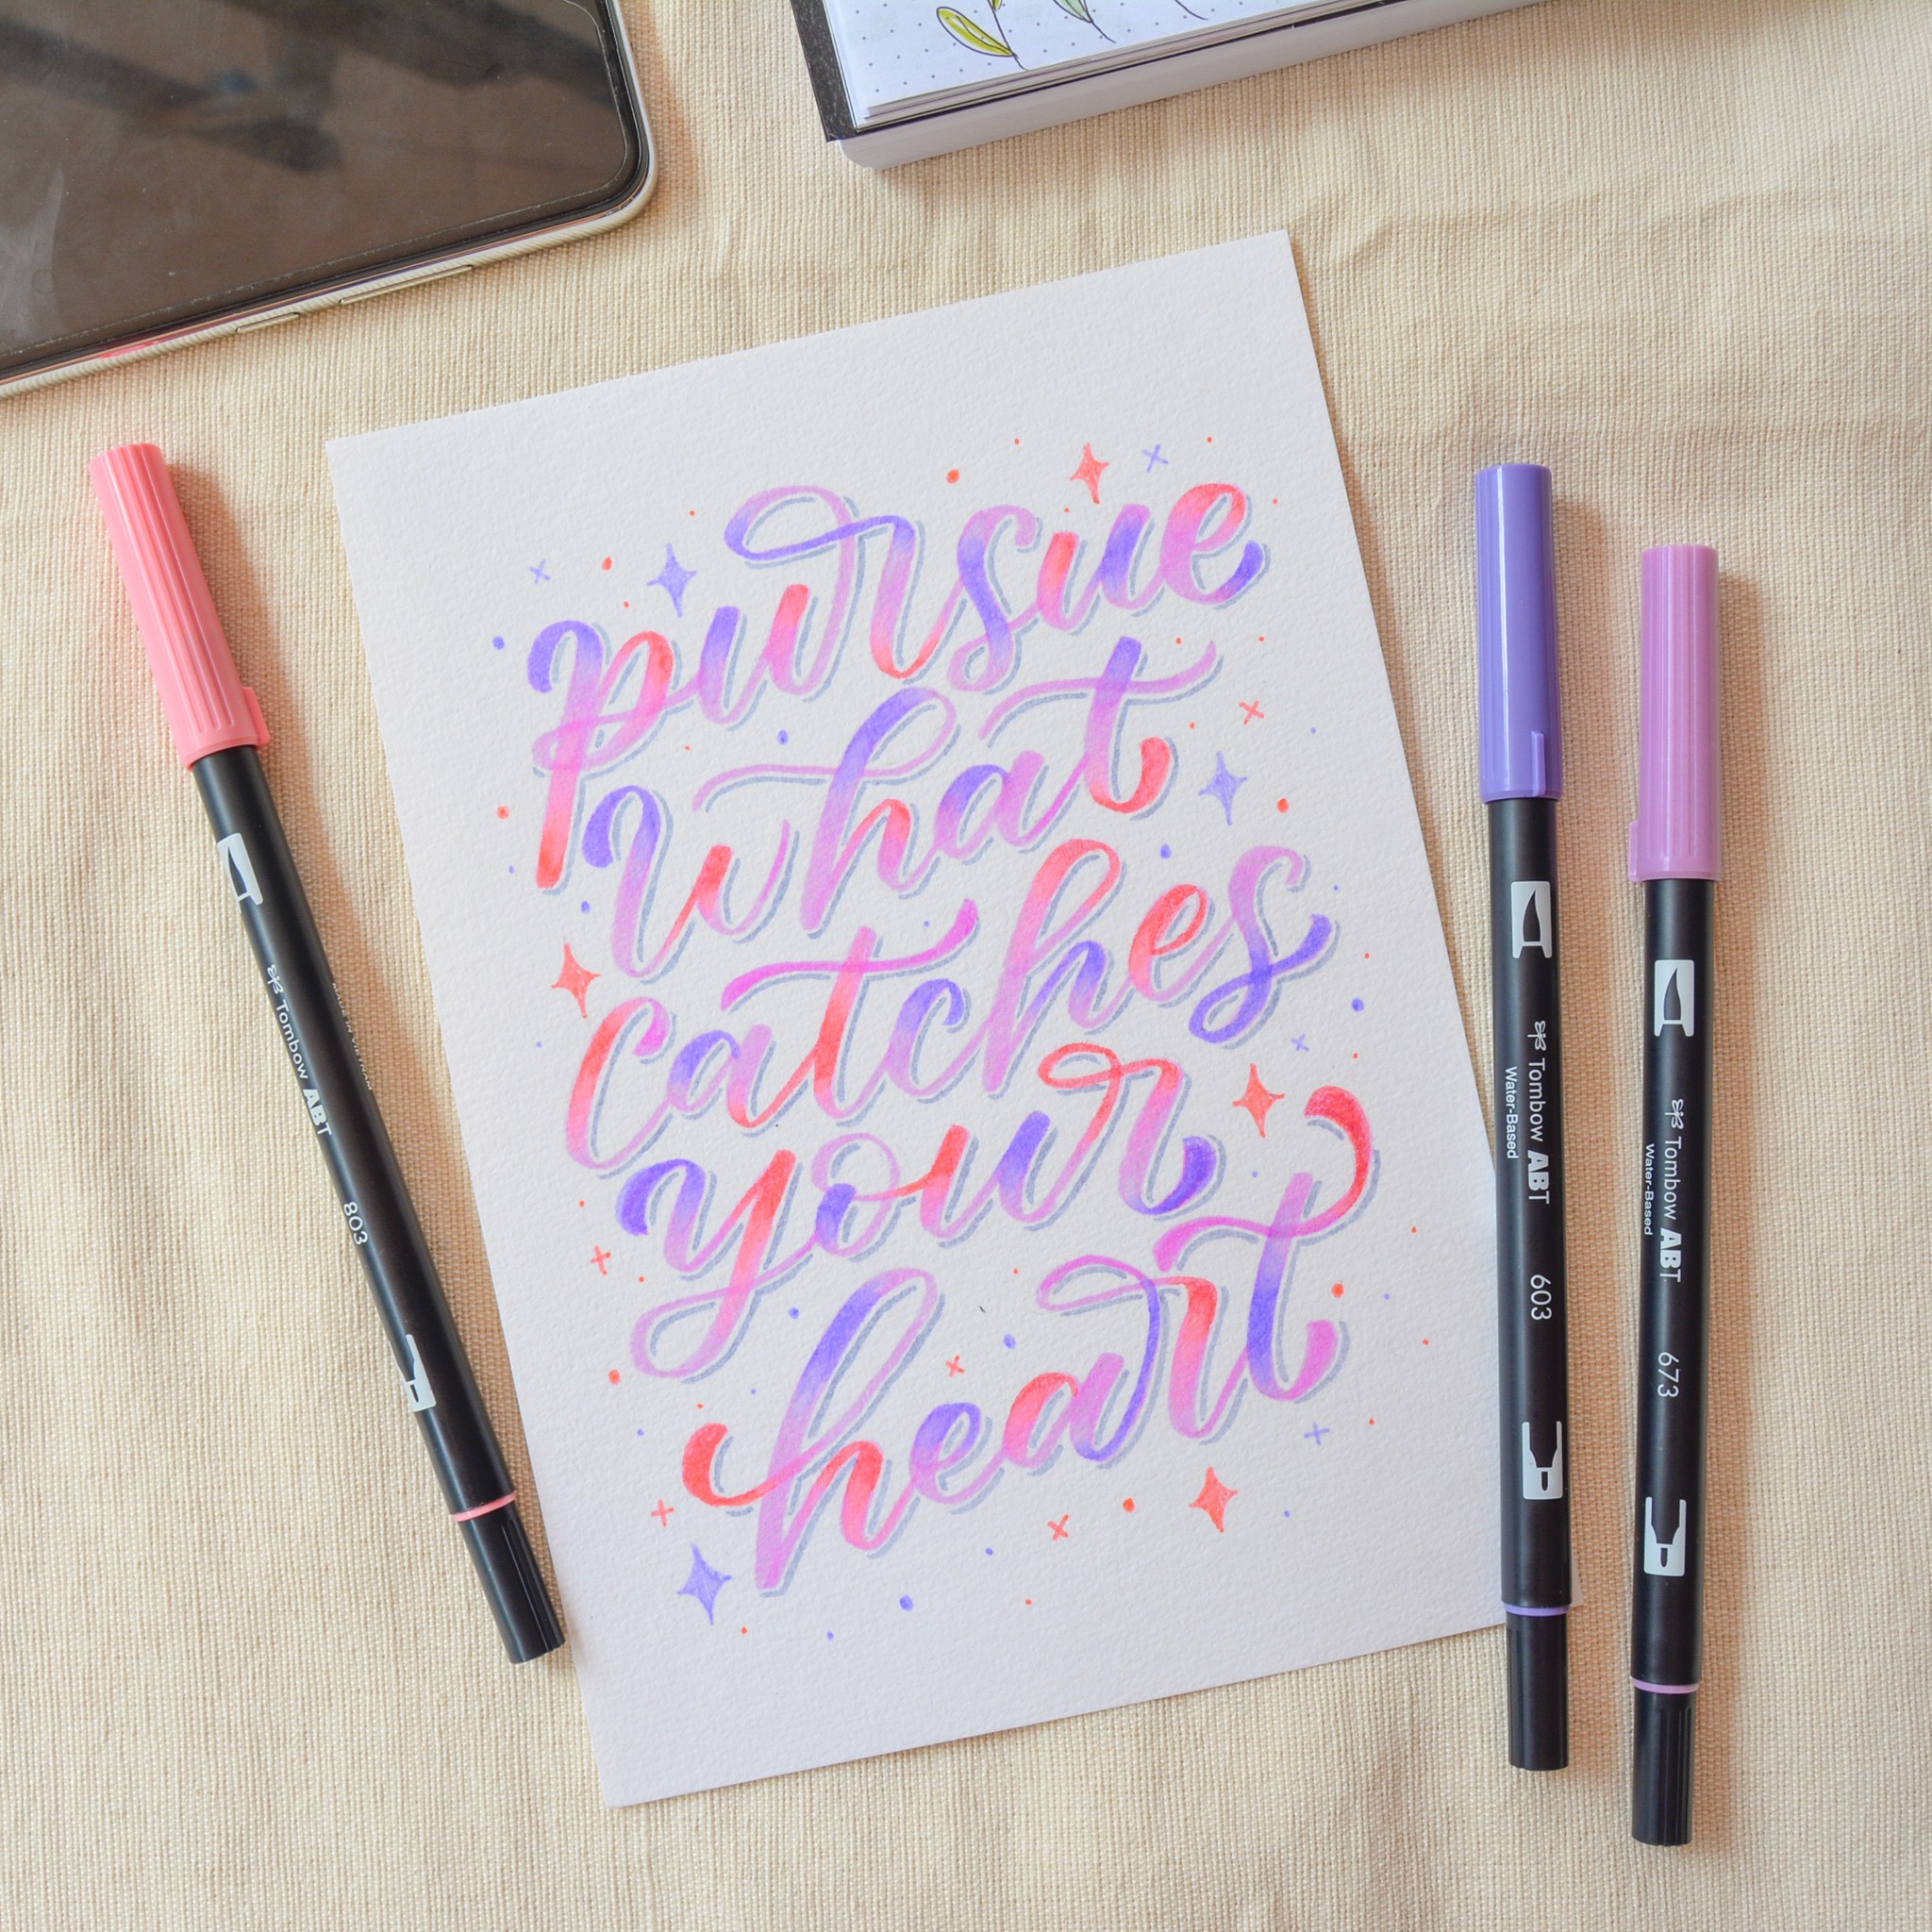 pursue
what
catches
your
heart
Tombow ABT
803
Tombow ABT
Water-Based
603
Tombow ABT
Water-Based
673